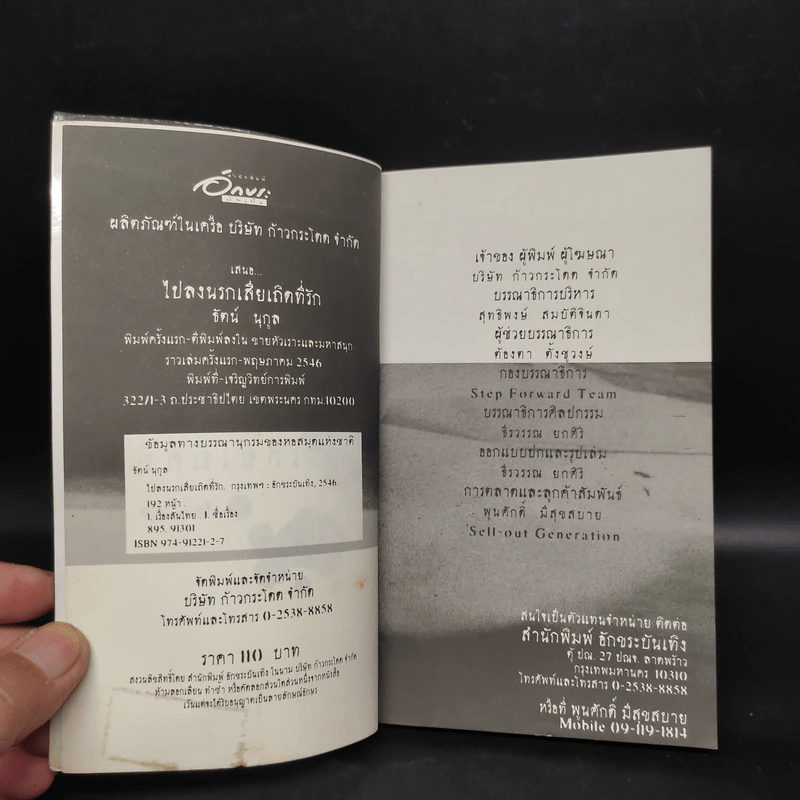 สำนักพิมพ์
อักขระ
บันเทิง
ผลิตภัณฑ์ในเครือ บริษัท ก้าวกระโดด จำกัด
เสนอ...
ไปลงนรกเสียเถิดที่รัก
ธัตน์ นุกูล
พิมพ์ครั้งแรก-ตีพิมพ์ลงใน ขายหัวเราะและมหาสนุก
ราวเล่มครั้งแรก-พฤษภาคม 2546
พิมพ์ที่-เจริญวิทย์การพิมพ์
322/1-3 ถ.ประชาธิปไตย เขตพระนคร กทม.10200
ข้อมูลทางบรรณานุกรมของหอสมุดแห่งชาติ
ธัตน์ นุกูล
ไปลงนรกเสียเถิดที่รัก. กรุงเทพฯ : อักขระบันเทิง, 2546.
192 หน้า.
1. เรื่องสั้นไทย. I. ชื่อเรื่อง
895. 91301
ISBN 974-91221-2-7
จัดพิมพ์และจัดจำหน่าย
บริษัท ก้าวกระโดด จำกัด
โทรศัพท์และโทรสาร 0-2538-8858
ราคา 110 บาท
สงวนลิขสิทธิ์โดย สำนักพิมพ์ อักขระบันเทิง ในนาม บริษัท ก้าวกระโดด จำกัด
ห้ามลอกเลียน ทำซ้ำ หรือคัดลอกส่วนใดส่วนหนึ่งจากหนังสือ
เว้นแต่จะได้รับอนุญาตเป็นลายลักษณ์อักษร
เจ้าของ ผู้พิมพ์ ผู้โฆษณา
บริษัท ก้าวกระโดด จำกัด
บรรณาธิการบริหาร
สุทธิพงษ์ สมบัติจินดา
ผู้ช่วยบรรณาธิการ
ต้องตา ตั้งชูวงษ์
กองบรรณาธิการ
Step Forward Team
บรรณาธิการศิลปกรรม
ธีรวรรณ ยกศิริ
ออกแบบปกและรูปเล่ม
ธีรวรรณ ยกศิริ
การตลาดและลูกค้าสัมพันธ์
พูนศักดิ์ มีสุขสบาย
Sell-out Generation
สนใจเป็นตัวแทนจำหน่าย ติดต่อ
สำนักพิมพ์ อักขระบันเทิง
ตู้ ปณ. 27 ปณจ. ลาดพร้าว
กรุงเทพมหานคร 10310
โทรศัพท์และโทรสาร 0-2538-8858
หรือที่ พูนศักดิ์ มีสุขสบาย
Mobile 09-119-1814